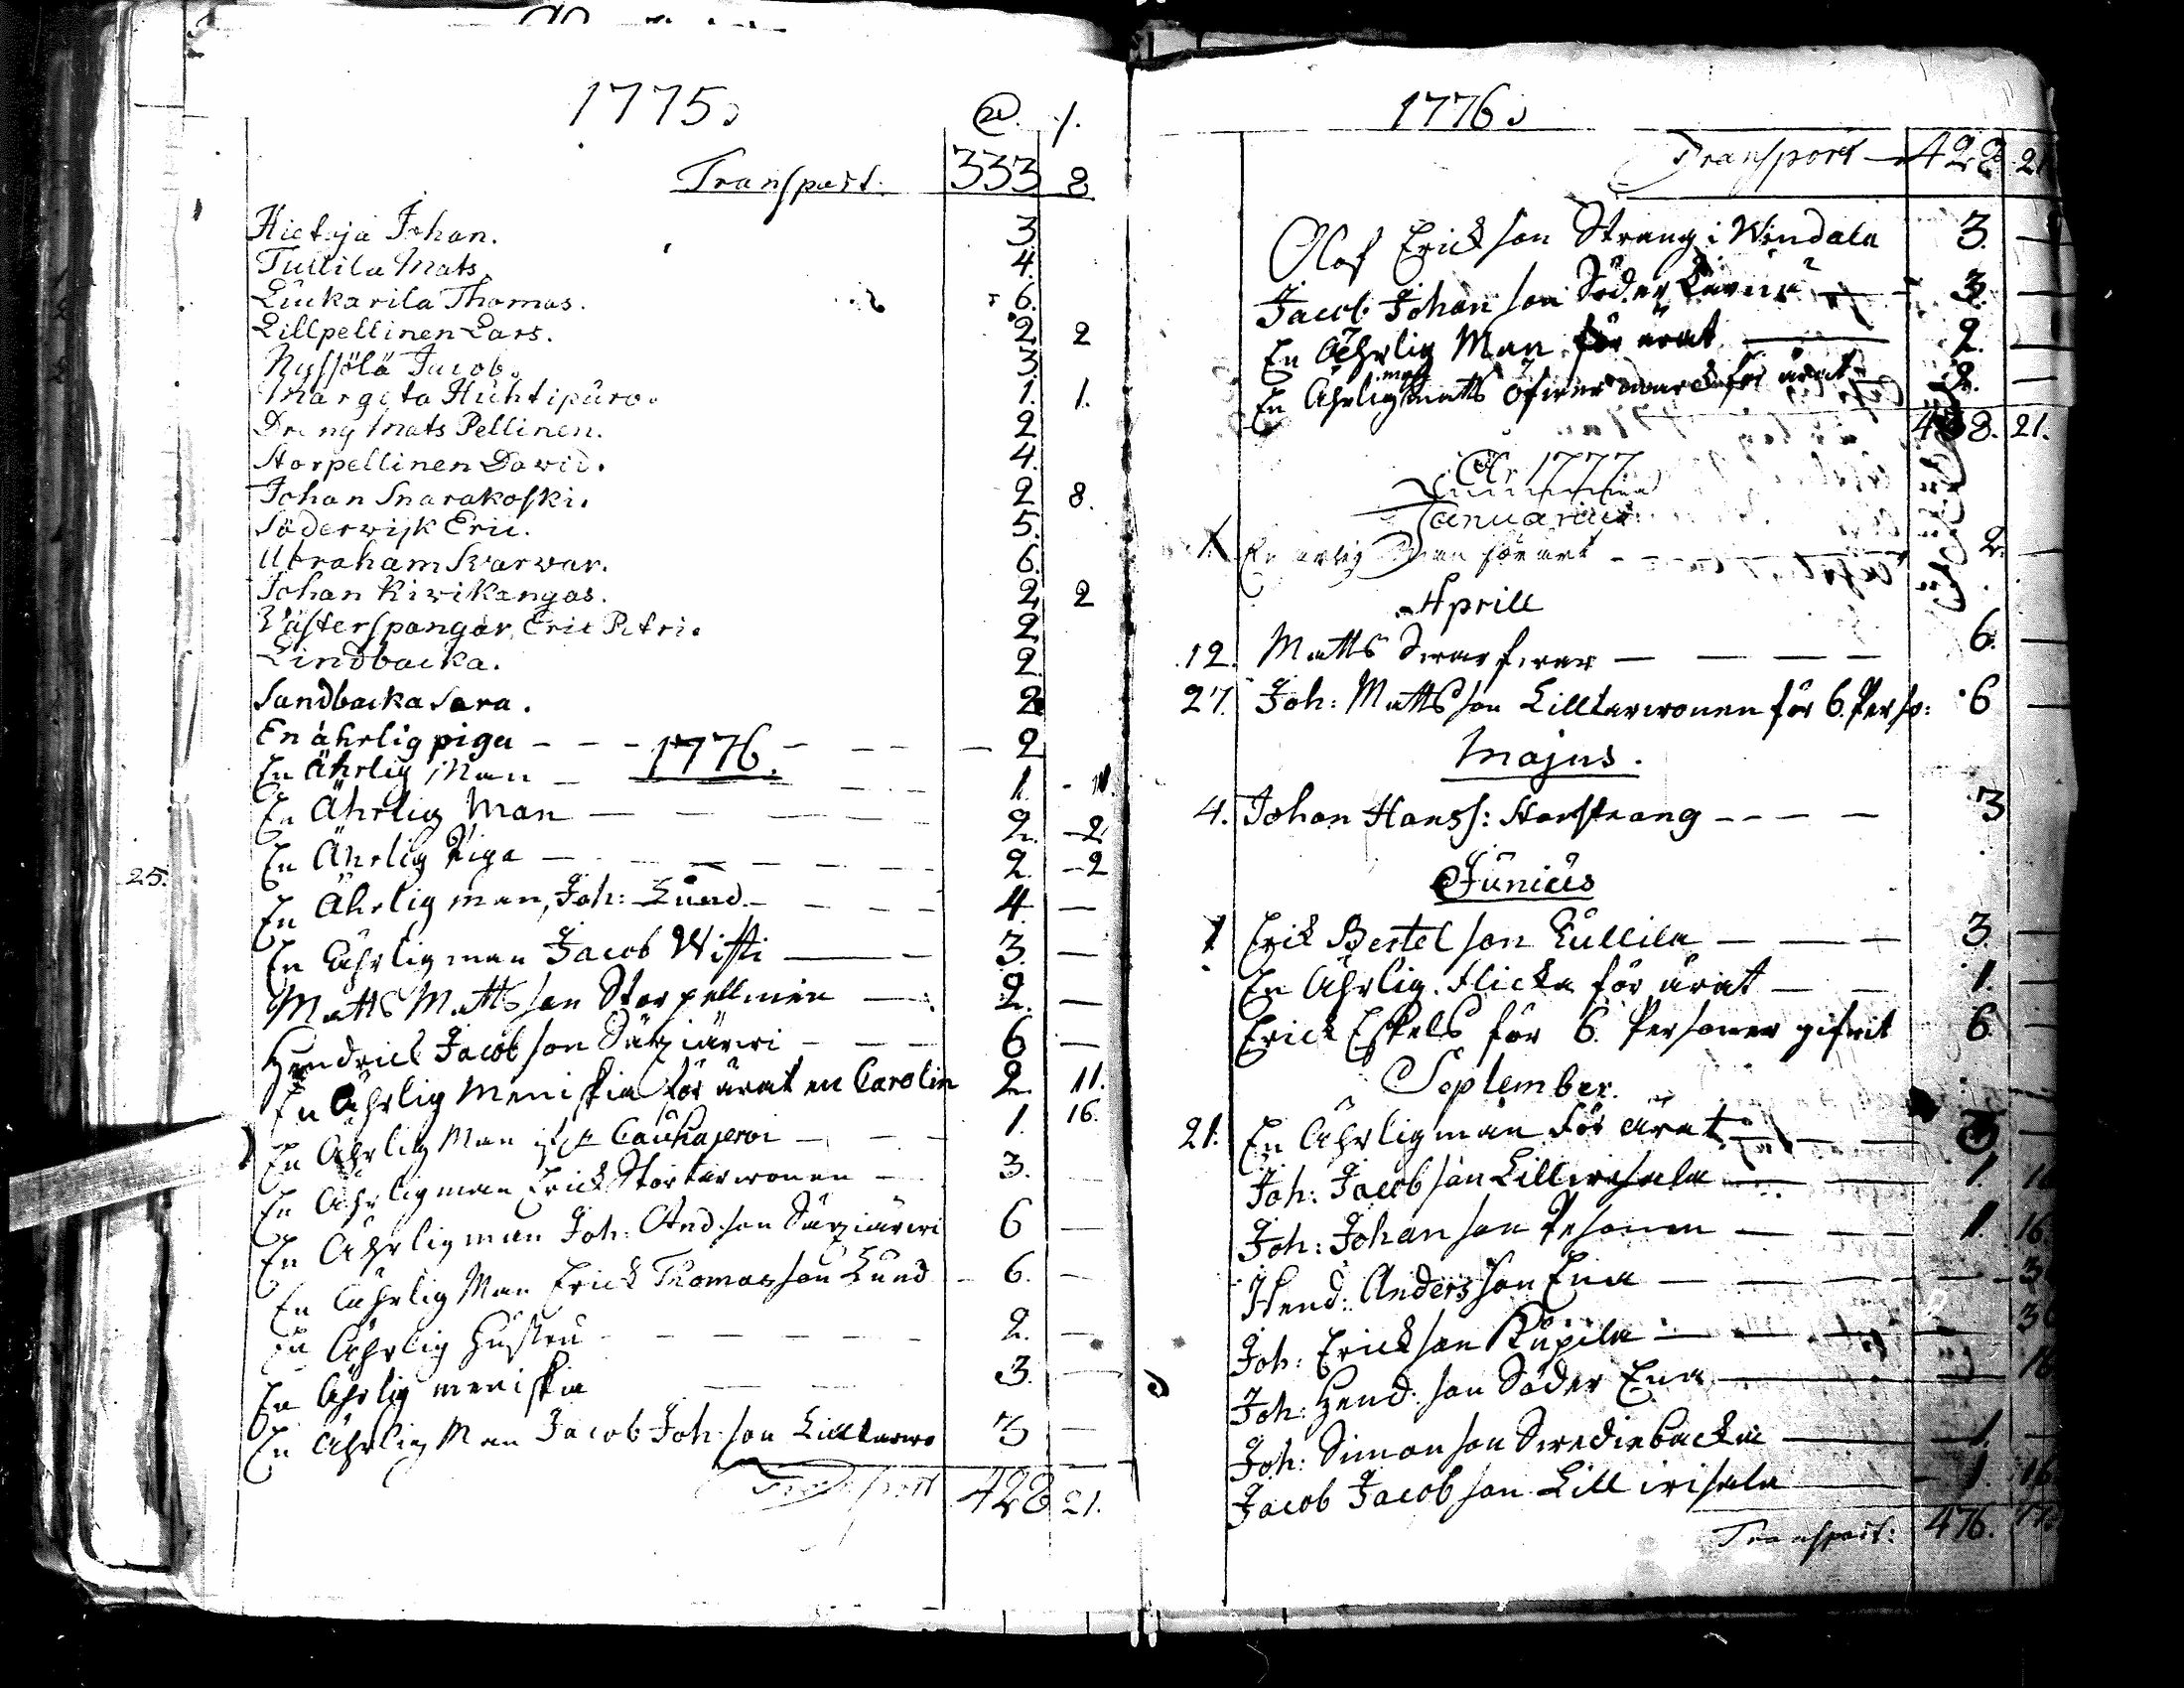 1775.
Transport. 333 8
Hietoja Johan. 3
Tullila Mats. 4.
Luckarila Thomas. 6.
Lillpellinen Lars. 2 2
Ryssölä Jacob. 3
Margeta Huhtipuro. 1. 1.
Dräng Mats Pellinen. 2
Storpellinen David. 4.
Johan Snarakoski. 2 8.
Söderwijk Eric. 5.
Abraham Svarvar. 6.
Johan Kivikangas. 2 2
Västerspangar, Eric Petri. 2
Lindbacka. 2
Sandbacka Sara. 2
En ährlig piga - - - 2
1776.
En Ährlig Man - 1.
En Ährlig Man - 2. - 2
En Ährlig Piga - 2. - 2
25.
En Ährlig man, Joh: Lund - 4. -
En Ährlig man Jacob Witti - 3. -
Matts Mattsson Storpellinen - 2. -
Hendrick Jacobson Särjiärwi - 6 -
En Ährlig Meniskia för ärat en Carolin 2 11.
En Ährlig Man Cauhajervi - 1. 16.
En Ährlig man Erick Stortarwonen - 3.
En Ährlig man Joh: Andson Särjiärwi 6 -
En Ährlig Man Erick Thomasson Lund - 6. -
En Ährlig Hustru - 2. -
En Ährlig meniskia 3. -
En Ährlig Man Jacob Joh:son Lilltarwo 3 -
Transport 428 21.
1776.
Transport - 428 21
Olof Erickson Strang i Windala 3. -
Jacob Johanson Söder - 3. -
En Ährlig Man för ärat - 2. -
En Ährlig man Matts för ärat 2. -
438. 21.
Ao 1777
Januarius
1. En ärlig Man för ärt - 2. -
Aprill
12. Matts Swarfwar - 6. -
27. Joh: Mattsson Lilltarwonen för 6. Perso: 6 -
Majus.
4. Johan Hanss: Storstrang - 3
Junius
1 Erik Bertelson Kullila - 3. -
En Ährlig Flicka för ärat - 1. -
Erick Eskels för 6. Personer gifwit 6. -
September.
21. En Ährlig man för ärat - 3 -
Joh: Jacobson Lillwisala - 1. 16
Joh: Johanson Pesonen - 1. 16
Hend: Andersson Ena - 3
Joh: Erickson Kupila -
Joh: Hend:son Söder Ena - 16
Joh: Simonson Swediebacka - 1. -
Jacob Jacobson Lill wisala - 1. 16
Transport: 476.